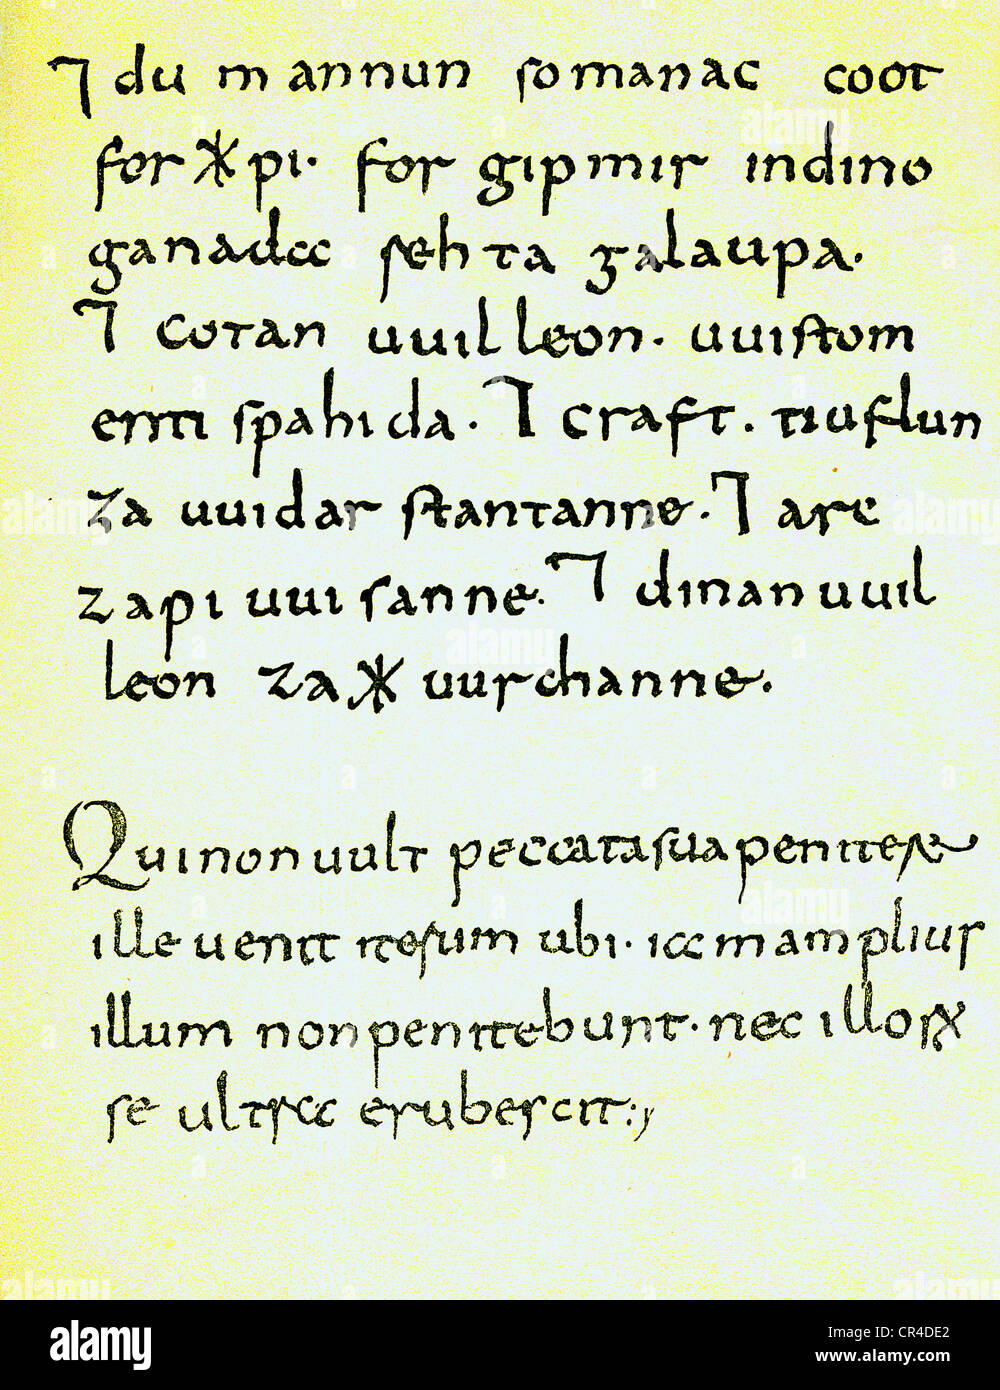 ⁊ du mannun so manac coot
for ᛡpi. for gip mir indino
ganada rehta galaupa.
⁊ cotan uuilleon. uuistom
enti spahida. ⁊ craft. tiuflun
za uuidar stantanne. ⁊ arc
zapi uuisanne. ⁊ dinan uuil
leon za ᛡuurchanne.
Qui non uult peccata sua penitere
ille uenit iterum ubi. ia mamplius
illum non penitebunt. nec illoꝝ
se ultra erubescit:,
alamy
Image ID: CR4DE2
www.alamy.com